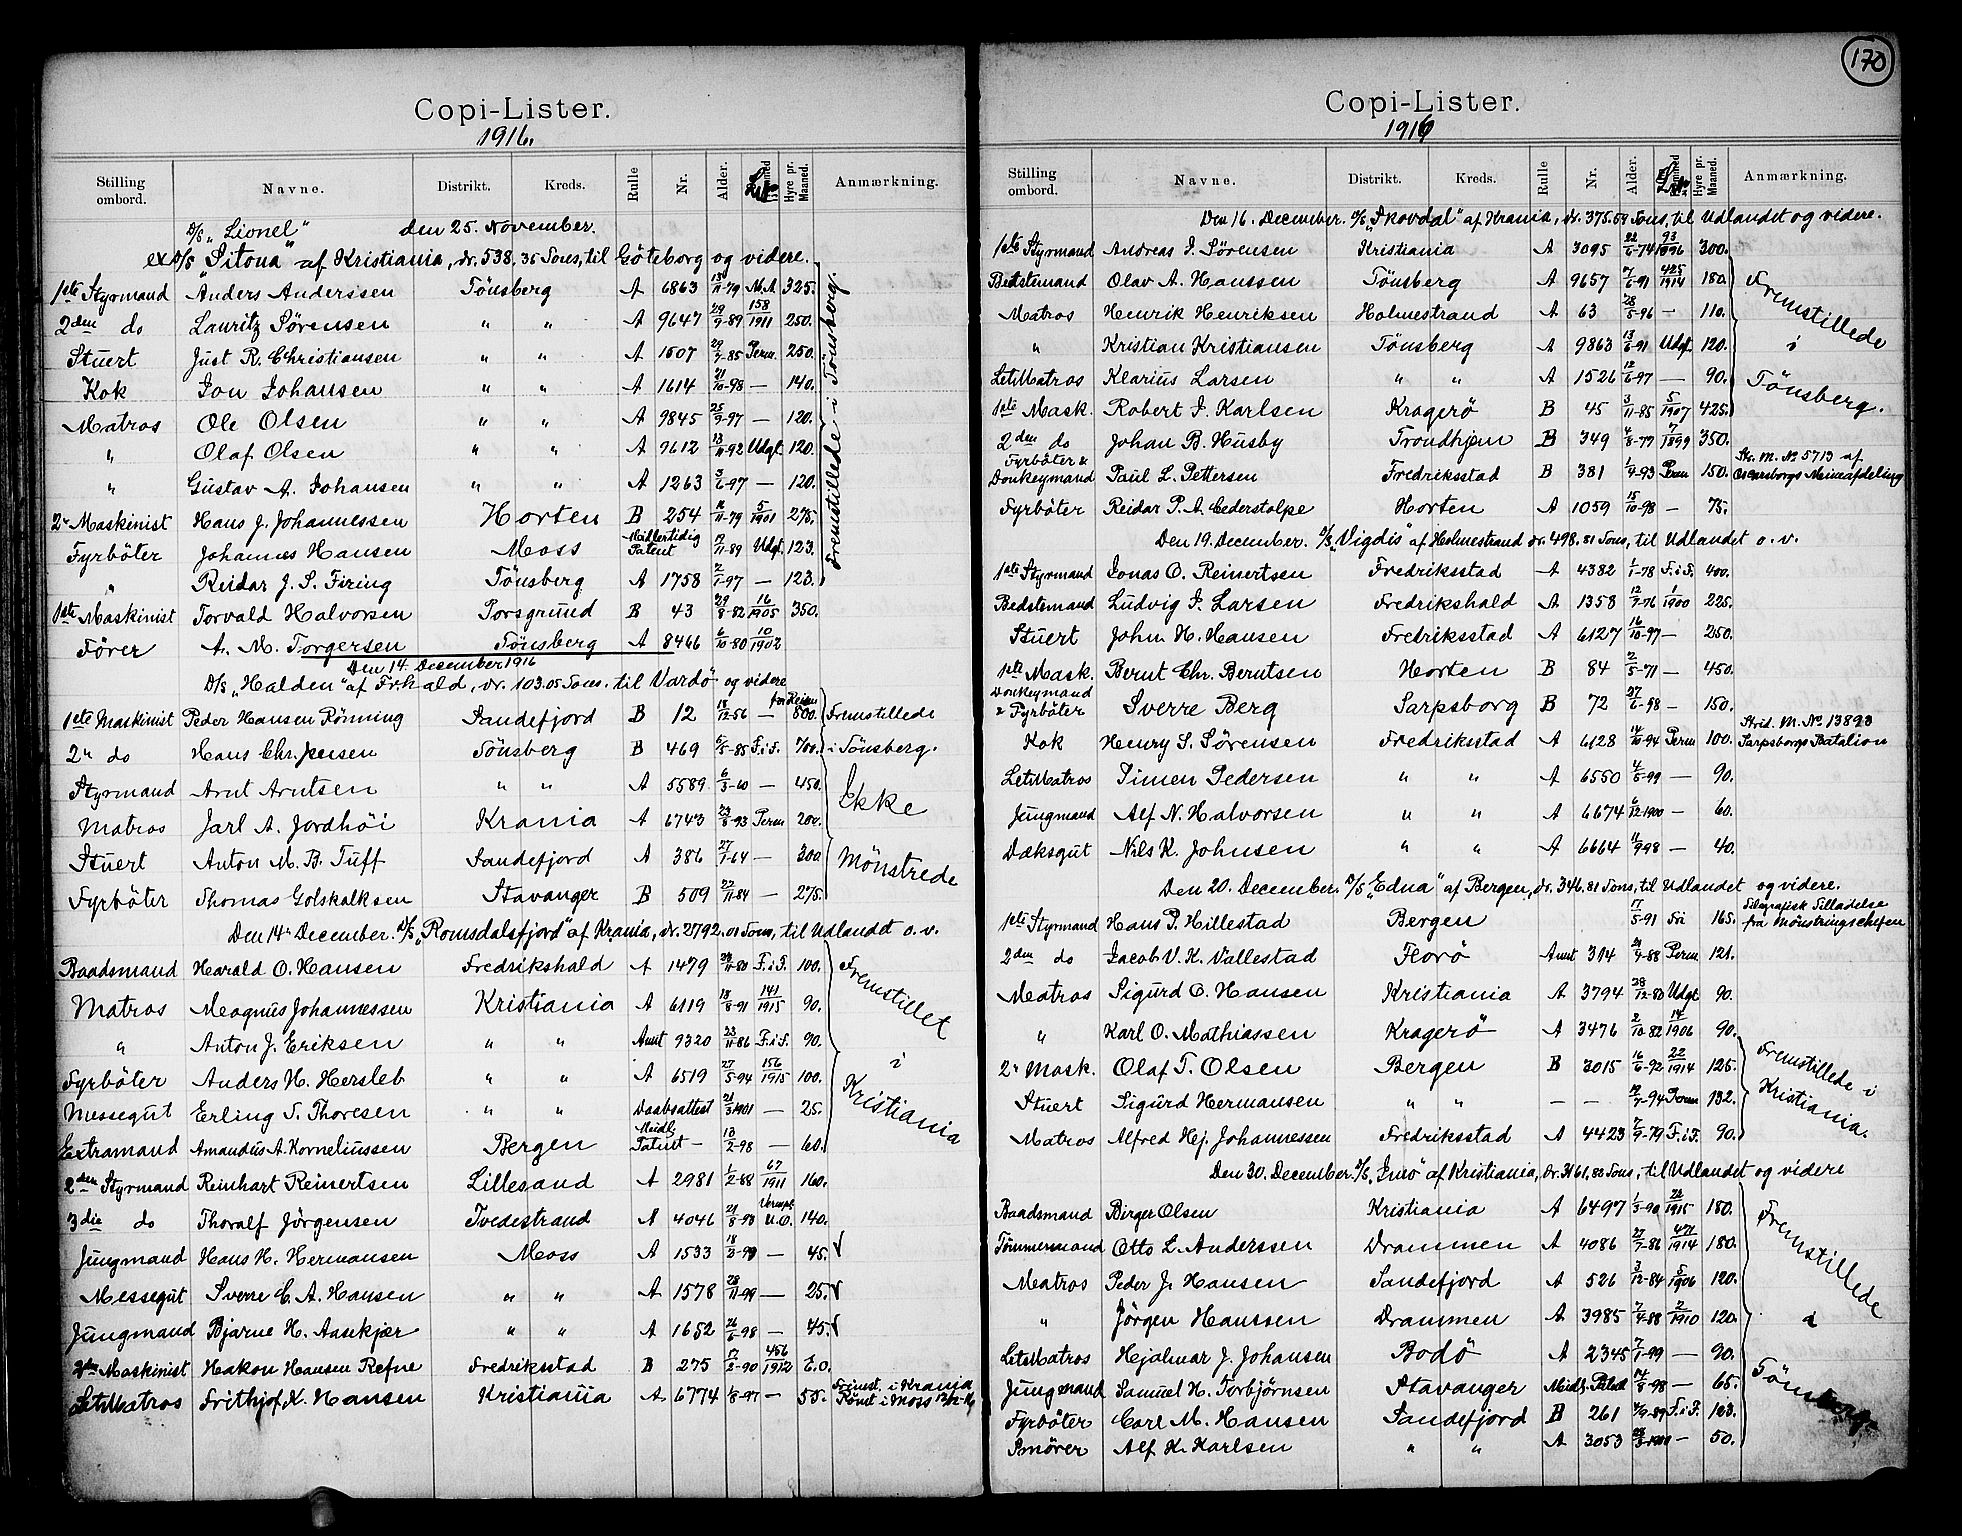 170
Copi-Lister.
1916.
Stilling ombord. Navne. Distrikt. Kreds. Rulle Nr. Alder. Hyre pr. Maaned. Anmærkning.
D/S „Lionel" den 25. November.
ex D/S „Sitona" af Kristiania, dr. 538,35 Tons, til Göteborg og videre.
1ste Styrmand Anders Anderssen Tönsberg A 6863 13/11-79 325.
2den do Lauritz Sørensen " " A 9647 29/9-89 158/1911 250.
Stuert Just R. Christiansen " " A 1507 29/7-85 Perm. 250.
Kok Jon Johansen " " A 1614 21/10-98 — 140.
Matros Ole Olsen " " A 9845 25/9-97 — 120.
" Olaf Olsen " " A 9612 13/11-92 Udgt 120.
" Gustav A. Johansen " " A 1263 3/6-97 — 120.
2n Maskinist Hans J. Johannessen Horten B 254 11/11-79 5/1901 275.
Fyrböter Johannes Hansen Moss Midlertidig Patent 7/11-89 Udgt. 123.
" Reidar J. S. Firing Tönsberg A 1758 2/1-97 — 123.
1ste Maskinist Torvald Halvorsen Porsgrund B 43 29/8-82 16/1905 350.
Förer A. M. Torgersen Tönsberg A 8466 6/10-80 10/1902
Fremstillede i Tönsberg.
Den 14. December 1916
D/S „Halden" af Frhald, dr. 103.05 Tons. til Vardö og videre
1ste Maskinist Peder Hansen Rönning Sandefjord B 12 18/12-56 — for Reisen 800.
2n do Hans Chr. Jensen Tönsberg B 469 6/5-85 F.i.S. 700.
Styrmand Arnt Arntsen " " A 5589 6/3-60 — 450.
Matros Jarl A. Jordhöi Krania A 6743 23/8-93 Perm 200.
Stuert Anton M. B. Tuff Sandefjord A 386 27/1-64 — 300
Fyrböter Thomas Golskalksen Stavanger B 509 27/11-84 — 275.
Fremstillede i Tönsberg.
Ikke Mönstrede
Den 14n December. D/S „Romsdalsfjord" af Krania, dr. 2792.01 Tons, til Udlandet o. v.
Baadsmand Harald O. Hansen Fredrikshald A 1479 24/11-80 F.i.F. 100.
Matros Magnus Johannessen Kristiania A 6119 18/8-91 141/1915 90.
" Anton J. Eriksen " " Amt 9320 23/11-86 F.i.S. 90.
Fyrböter Anders H. Hersleb " " A 6519 27/5-94 156/1915 100.
Messegut Erling S. Thoresen " " Daabsattest 21/3 1901 — 25.
Extramand Amandus A. Korneliussen Bergen Midl. Patent — 13/2-98 — 60.
2den Styrmand Reinhart Reinertsen Lillesand A 2981 1/2-88 67/1911 160.
3die do Thoralf Jörgensen Tvedestrand A 4046 21/8-98 U.O. 140.
Jungmand Hans H. Hermansen Moss A 1533 18/2-99 — 45.
Messegut Sverre C. A. Hansen " " A 1578 28/11-99 — 25.
Jungmand Bjarne H. Aasekjær " " A 1652 26/6-98 — 45.
2den Maskinist Hakon Hansen Refne Fredriksstad B 275 17/2-90 456/1912 E.O.
LetMatros Frithjof K. Hansen Kristiania A 6774 1/8-97 — 55.
Fremstillet i Kristiania
Fremst. i Krania
Copi-Lister.
1916
Stilling ombord. Navne. Distrikt. Kreds. Rulle Nr. Alder. Hyre pr. Maaned. Anmærkning.
Den 16. December. D/S „Skovdal" af Krania, dr. 375.69 Tons, til Udlandet og videre.
1ste Styrmand Andreas J. Sörensen Kristiania A 3095 22/6-74 93/1896 300.
Bedstemand Olav A. Hanssen Tönsberg A 9657 7/6-91 425/1914 180.
Matros Henrik Henriksen Holmestrand A 63 28/5-96 — 110.
" Kristian Kristiansen Tönsberg A 9863 13/6-91 Udgt. 120.
LetMatros Klarius Larsen " " A 1526 12/6-97 — 90.
1ste Mask. Robert J. Karlsen Kragerö B 45 3/11-85 5/1907 425.
Fremstillede i Tönsberg.
2den do Johan B. Husby Trondhjem B 349 4/8-79 7/1899 350.
Fyrböter & Donkeymand Paul L. Pettersen Fredriksstad B 381 1/9-93 Perm 150. Str. M. No 5713 af Oscarsborgs Mineafdeling
Fyrböter Reidar P. A. Cederstolpe Horten A 1059 15/10-98 — 75.
Den 19. December. D/S „Vigdis" af Holmestrand dr. 498.81 Tons, til Udlandet o. v.
1ste Styrmand Jonas O. Reinertsen Fredriksstad A 4382 1/1-78 F.i.F. 400.
Bedstemand Ludvig J. Larsen Fredrikshald A 1358 12/9-76 1/1900 225.
Stuert John H. Hansen Fredriksstad A 6127 16/10-97 — 250.
1ste Mask. Bernt Chr. Berntsen Horten B 84 2/5-71 — 450.
Donkeymand & Fyrböter Sverre Berg Sarpsborg B 72 27/6-98 — 150.
Kok Henry S. Sörensen Fredriksstad A 6128 14/10-94 Perm 100. Strid. M. No 13893 Sarpsborgs Batalion
LetMatros Simen Pedersen " " A 6550 4/5-99 — 90.
Jungmand Alf N. Halvorsen " " A 6674 6/12-1900 — 60.
Dæksgut Nils K. Johnsen " " A 6664 11/9-98 — 40.
Den 20. December. D/S „Edna" af Bergen, dr. 346.81 Tons, til Udlandet og videre.
1ste Styrmand Hans P. Hillestad Bergen 17/5-91 Fri 165. Telegrafisk Tilladelse fra Mönstringschefen
2den do Jacob V. K. Vallestad Florö Amt 314 21/9-88 Perm 121.
Matros Sigurd O. Hansen Kristiania A 3794 28/12-80 Udgt 90.
" Karl O. Mathiassen Kragerö A 3476 2/10-82 14/1906 90.
2n Mask. Olaf T. Olsen Bergen B 3015 16/6-92 22/1914 125.
Stuert Sigurd Hermansen " " — — 12/7-94 Perm 132.
Matros Alfred Hej. Johannessen Fredriksstad A 4423 7/9-79 F.i.F. 90.
Fremstillede i Kristiania.
Den 30. December. D/S „Imo" af Kristiania, dr. 3161,83 Tons, til Udlandet og videre
Baadsmand Birger Olsen Kristiania A 6497 1/3-90 28/1915 180.
Tömmermand Otto L. Anderssen Drammen A 4086 27/7-86 471/1914 180.
Matros Peder J. Hansen Sandefjord A 526 3/12-84 5/1906 120.
" Jörgen Hanssen Drammen A 3985 7/4-88 2/1910 120.
LetMatros Hjalmar J. Johansen Bodö A 2345 7/1-99 — 90.
Jungmand Samuel H. Torbjörnsen Stavanger Midl. Patent 14/8-98 — 65.
Fyrböter Carl M. Hansen Sandefjord B 261 4/9-89 F.i.F. 123.
Smörer Alf K. Karlsen " " A 3053 — 50.
Fremstillede i Tönsberg.